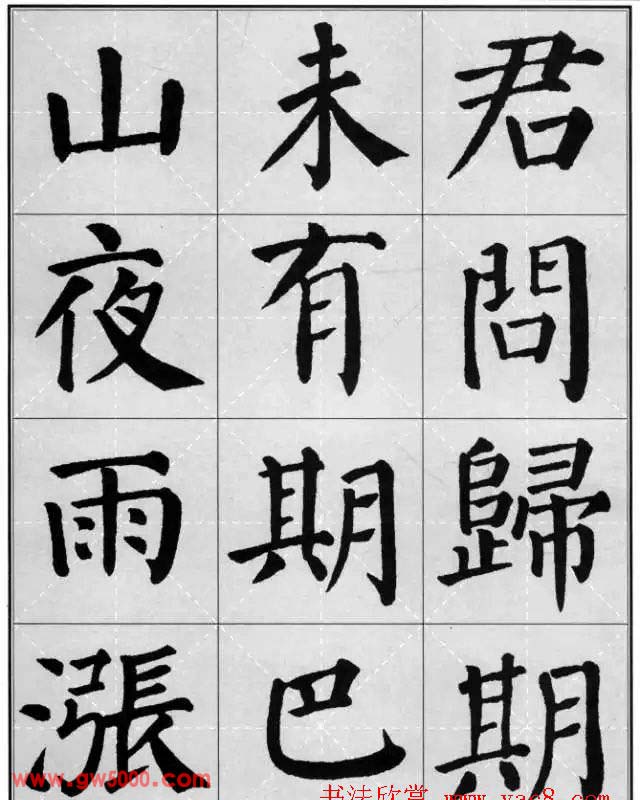 君問歸期
未有期巴
山夜雨漲
www.gw5000.com
书法欣赏 www.yac8.com